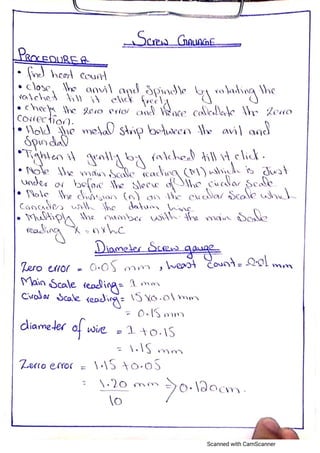 SCREW GAUAGE
PROCEDURE:
• find heart count
• close, the anvil and Spindle by rotating the
ratchet till it click freely
• check the zero error and hence calculate the zerro
correction.
• Hold the metal strip between the avil and
Spindal
• Tighten it gently by ratched till it click.
• Note the main Scale reading (M) which is Just
under or before the sleeve of the cicular Scale.
• Note the division (n) on the cicular Scale which
Concides with the datum line
• Multiply the number with the main Scale
reading X = n×LC
Diameter Screw gauge
Zero error = 0.05 mm, least Count = 0.01 mm
Main Scale reading = 1 mm
Ciculor Scale reading = 15 x0.01 mm
= 0.15 mm
diameter of wire = 1 +0.15
= 1.15 mm
Zerro error = 1.15 +0.05
= 1.20 mm => 0.120cm.
10
Scanned with CamScanner